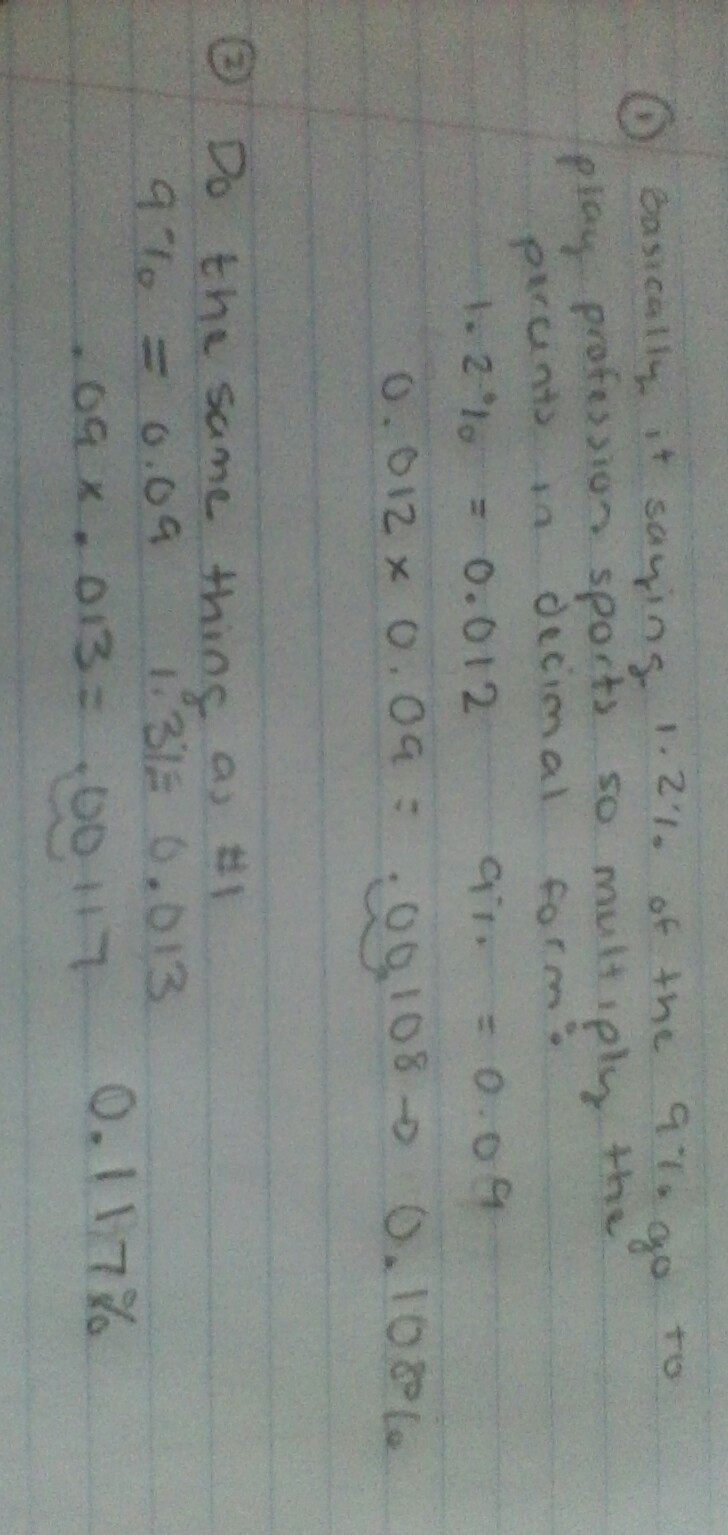 ① Basically it saying 1.2% of the 9% go to
play profession sports so multiply the
percents in decimal form:
1.2% = 0.012 9% = 0.09
0.012 x 0.09 = .00108 → 0.108%
② Do the same thing as #1
9% = 0.09 1.3% = 0.013
.09 x .013 = .00117 0.117%